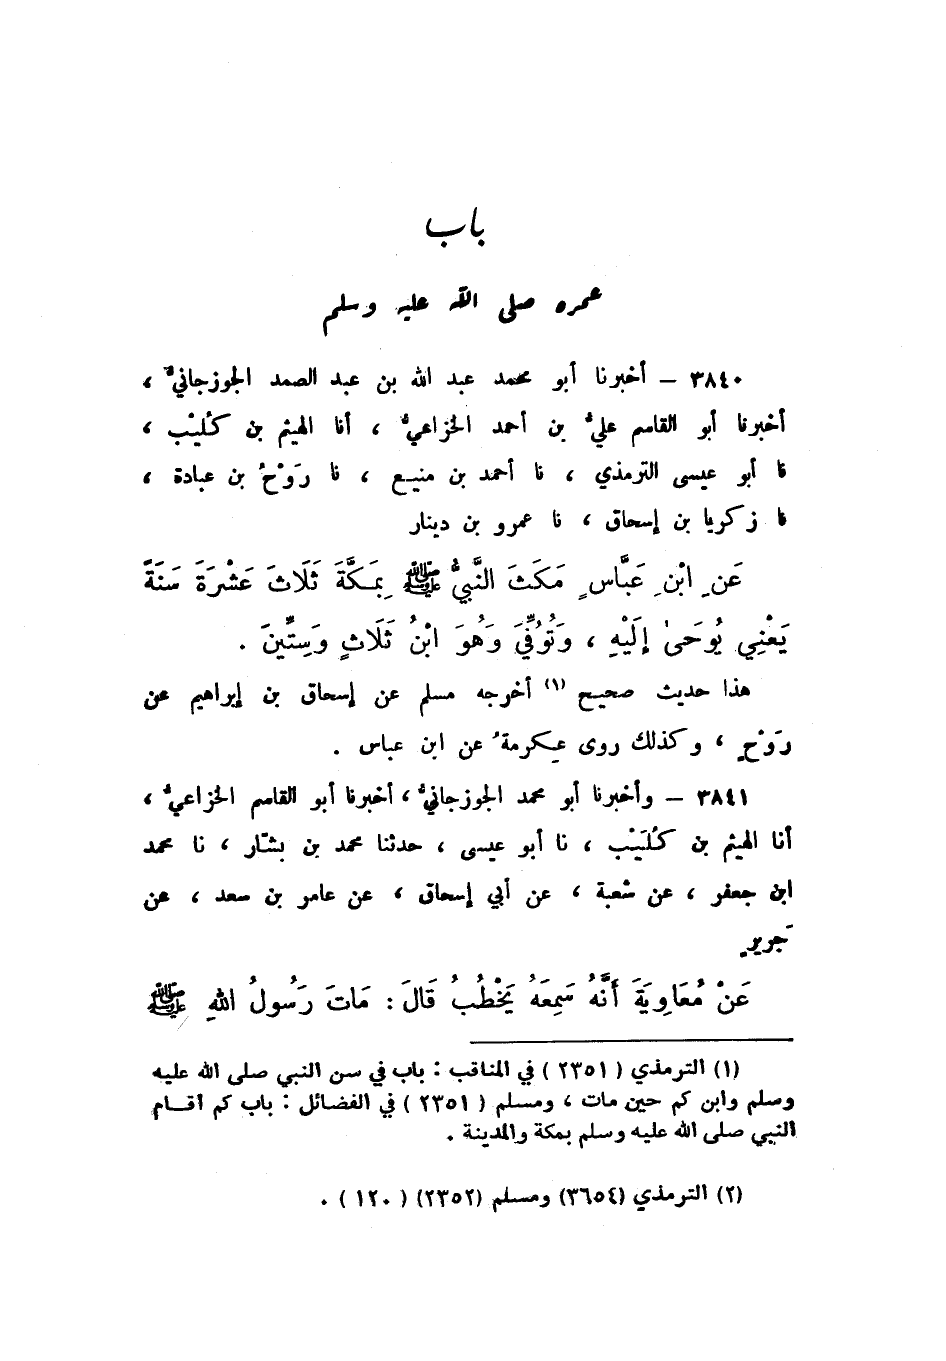 باب
عمره صلى الله عليه وسلم
٣٨٤٠ – أخبرنا أبو محمد عبد الله بن عبد الصمد الجوزجانيُّ ،
أخبرنا أبو القاسم عليُّ بن أحمد الخزاعيُّ ، أنا الهيثم بن كُلَيْب ،
نا أبو عيسى الترمذي ، نا أحمد بن منيع ، نا رَوْحُ بن عبادة ،
نا زكريا بن إسحاق ، نا عمرو بن دينار
عَنِ ابْنِ عَبَّاسٍ مَكَثَ النَّبِيُّ ﷺ بِمَكَّةَ ثَلَاثَ عَشْرَةَ سَنَةً
يَعْنِي يُوحَىٰ إِلَيْهِ ، وَتُوُفِّيَ وَهُوَ ابْنُ ثَلَاثٍ وَسِتِّينَ .
هذا حديث صحيح (١) أخرجه مسلم عن إسحاق بن إبراهيم عن
رَوْحٍ ، وكذلك روى عِكرمةُ عن ابن عباس .
٣٨٤١ – وأخبرنا أبو محمد الجوزجانيُّ ، أخبرنا أبو القاسم الخزاعيُّ ،
أنا الهيثم بن كُلَيْب ، نا أبو عيسى ، حدثنا محمد بن بشّار ، نا محمد
ابن جعفر ، عن شعبة ، عن أبي إسحاق ، عن عامر بن سعد ، عن
جَريرٍ
عَنْ مُعَاوِيَةَ أَنَّهُ سَمِعَهُ يَخْطُبُ قَالَ : مَاتَ رَسُولُ اللهِ ﷺ
(١) الترمذي ( ٢٣٥١ ) في المناقب : باب في سن النبي صلى الله عليه
وسلم وابن كم حين مات ، ومسلم ( ٢٣٥١ ) في الفضائل : باب كم أقـام
النبي صلى الله عليه وسلم بمكة والمدينة .
(٢) الترمذي (٣٦٥٤) ومسلم (٢٣٥٢) ( ١٢٠ ) .